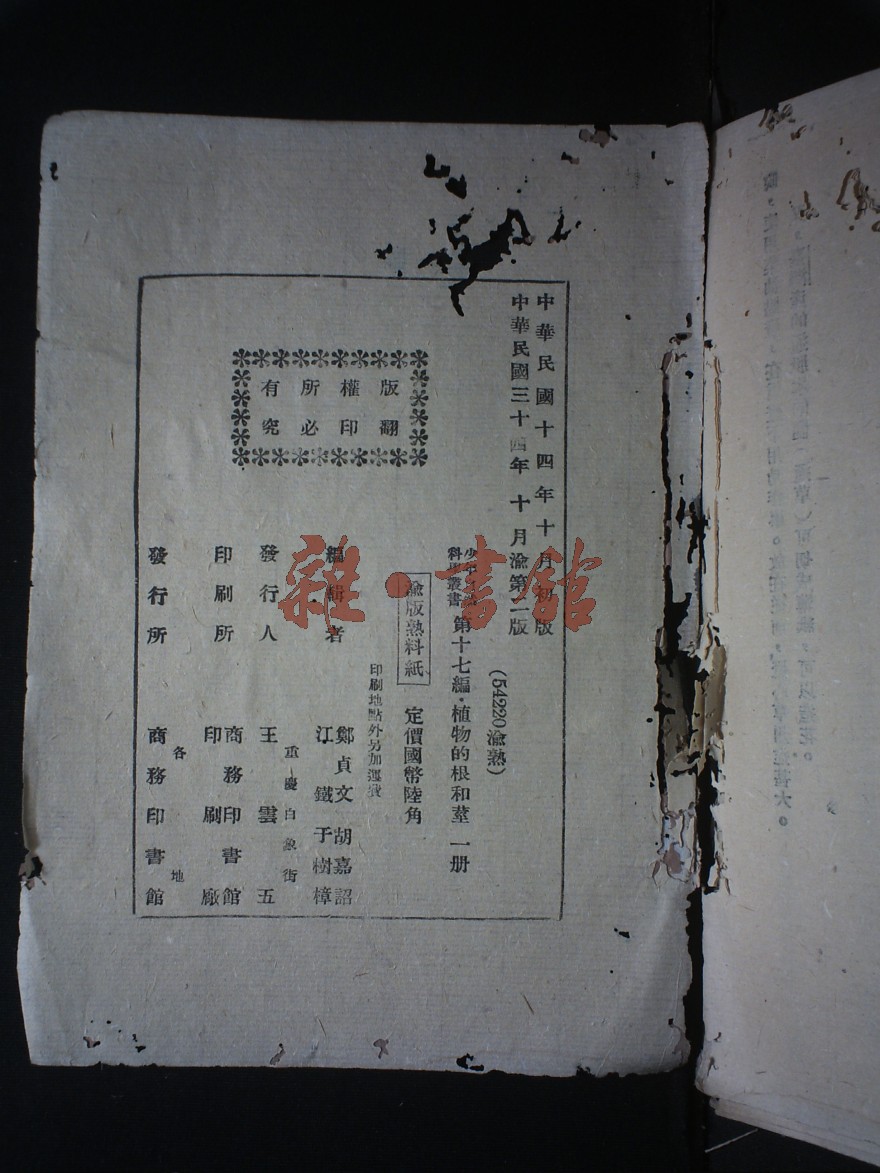 中華民國十四年十月初版
中華民國三十四年十月渝第二版
(54220渝熟)
科學叢書 第十七編 植物的根和莖 一册
渝版熟料紙 定價國幣陸角
印刷地點外另加運費
編輯者 鄭貞文 胡嘉詔
江鐵 于樹樟
重慶白象街
發行人 王雲五
印刷所 商務印書館
印刷廠
各地
發行所 商務印書館
版權所有
翻印必究
雜·書館